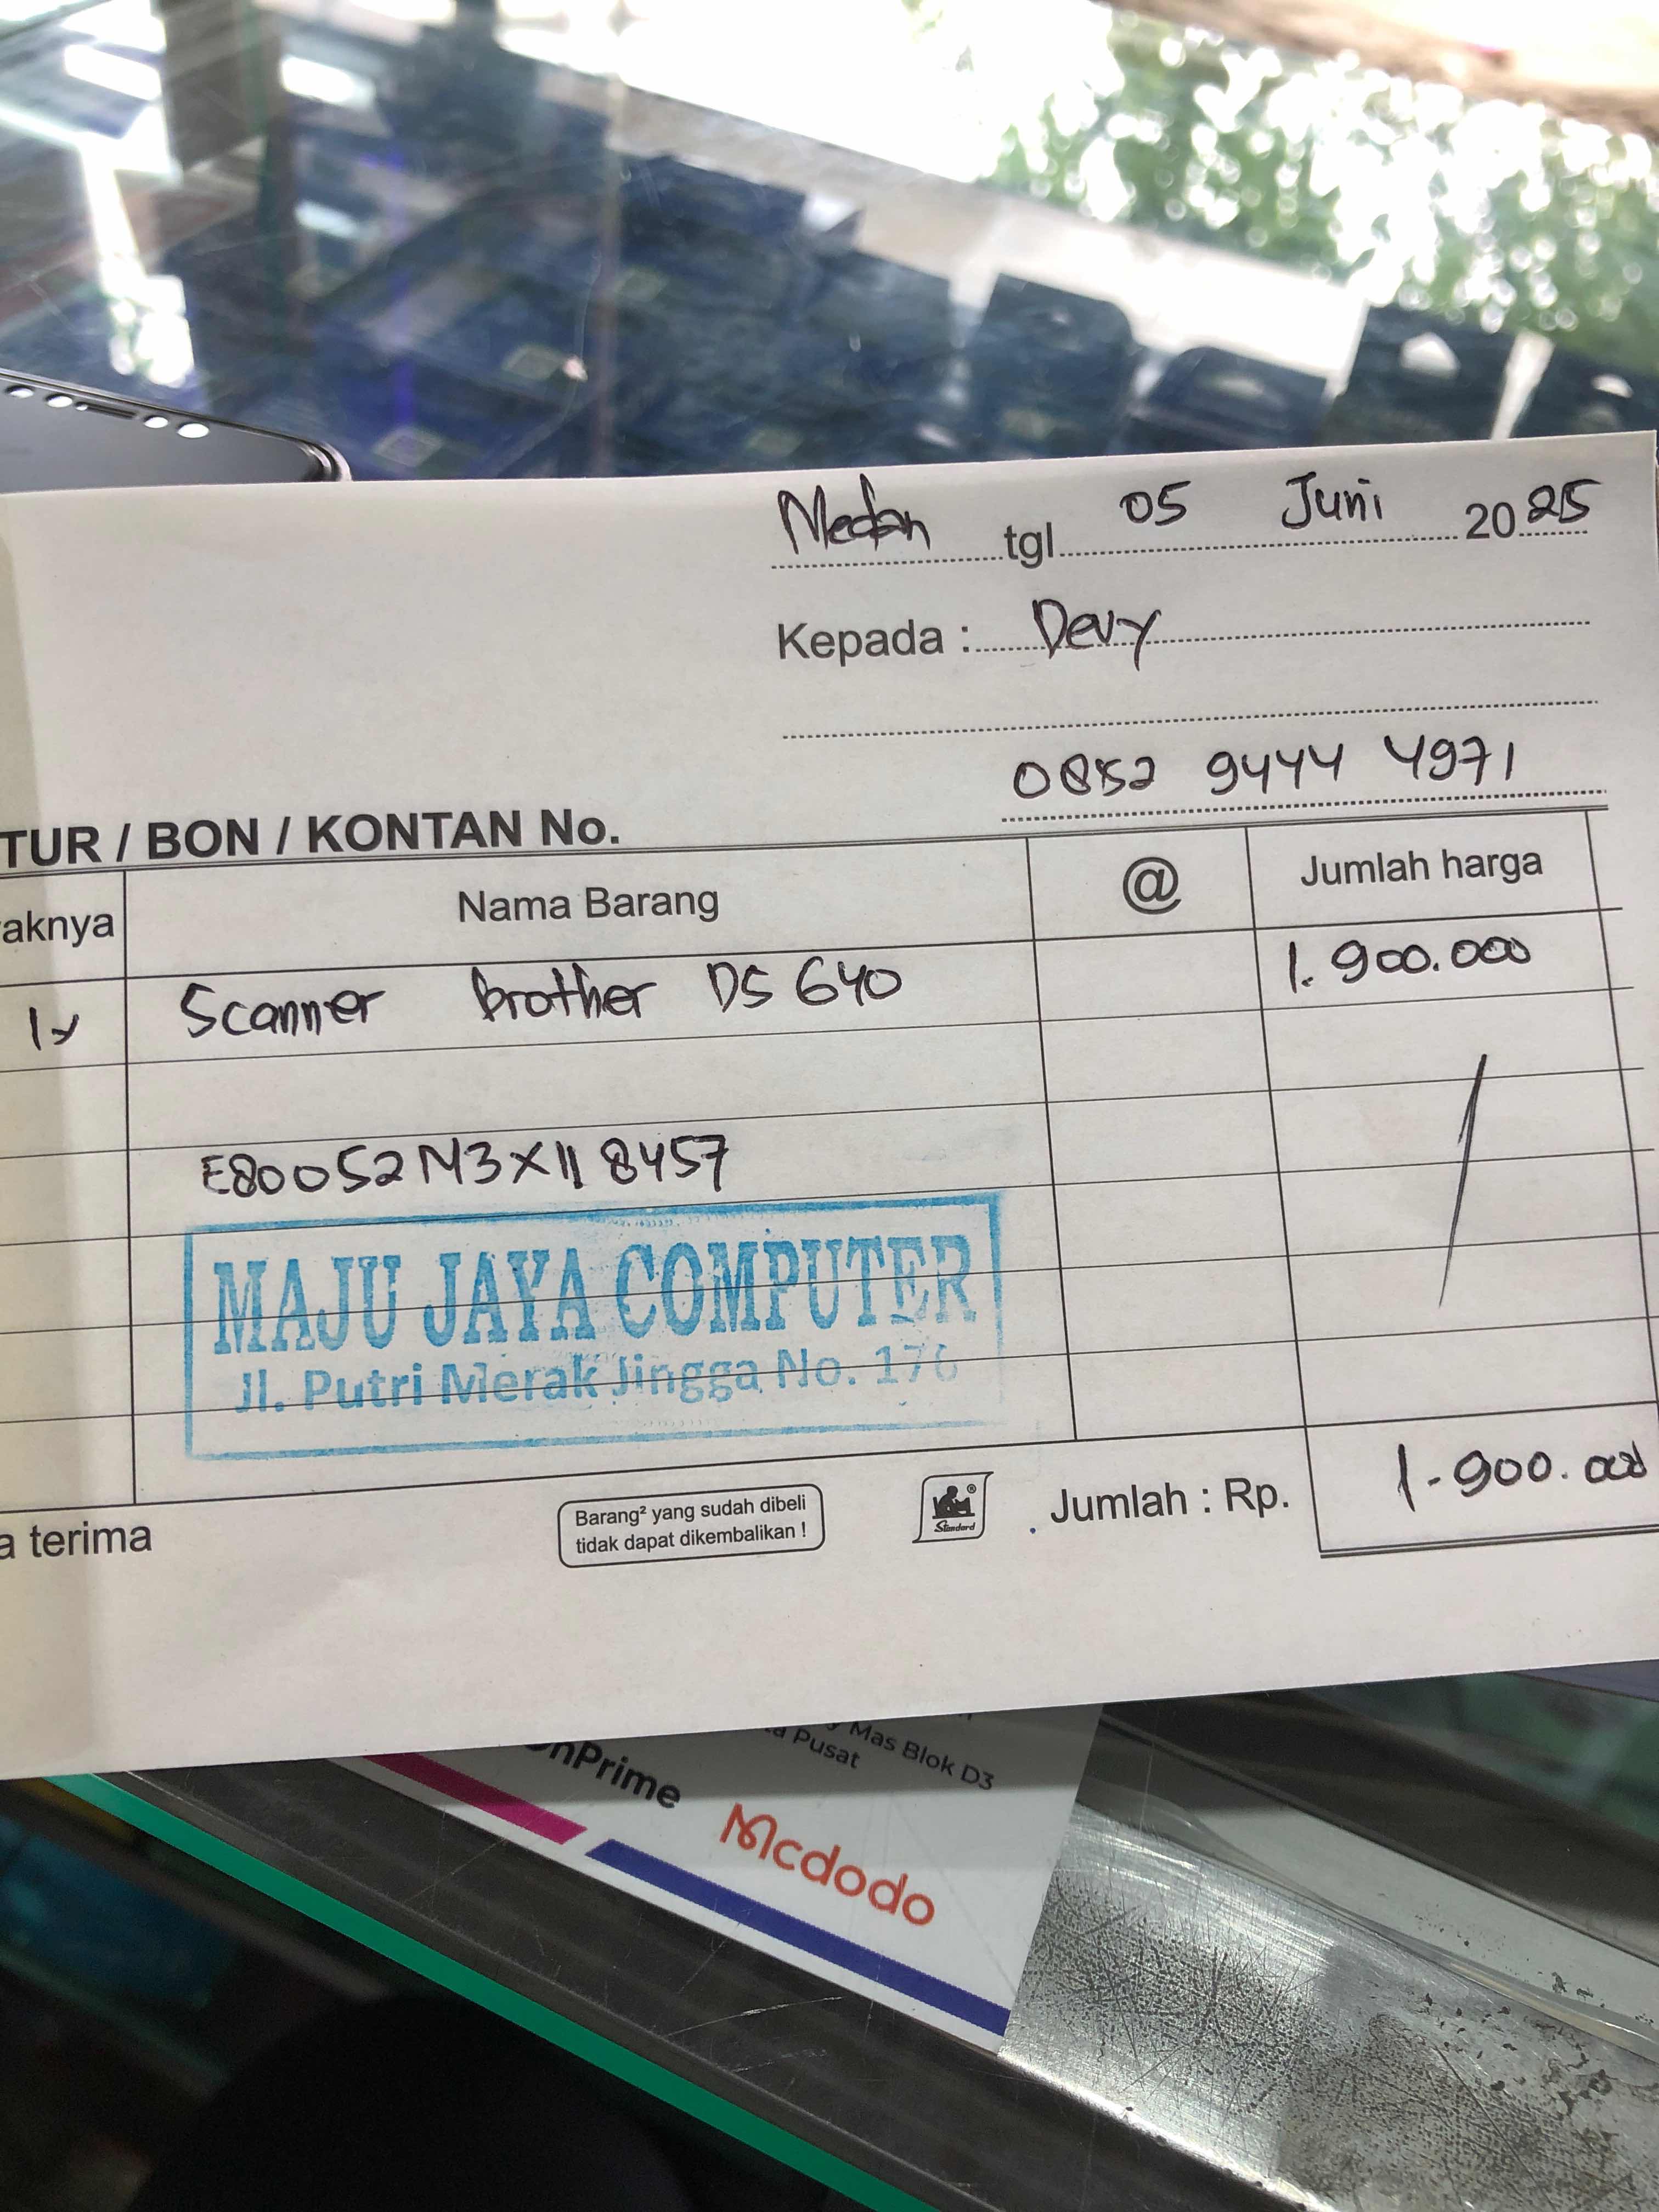 Medan tgl 05 Juni 2025
Kepada : Devy
0852 9444 4971
TUR / BON / KONTAN No.
aknya Nama Barang @ Jumlah harga
1x Scanner brother DS 640 1.900.000
E80052M3X118457
MAJU JAYA COMPUTER
Jl. Putri Merak Jingga No. 176
a terima
Barang² yang sudah dibeli
tidak dapat dikembalikan !
Standard
Jumlah : Rp. 1.900.000
Mas Blok D3
a Pusat
nPrime
Mcdodo